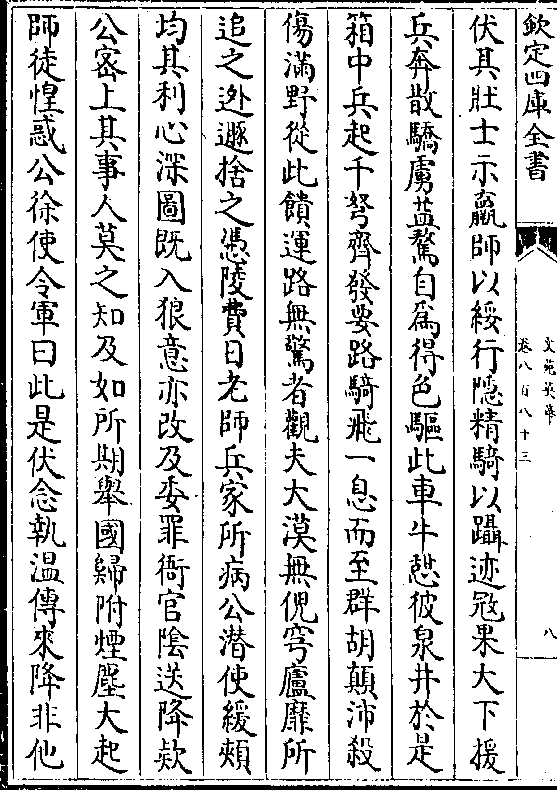 欽定四庫全書
文苑英華
卷八百八十三
八
伏其壯士示羸師以綏行隠精騎以躡迹冦果大下援
兵奔散驕虜益驁自爲得色驅此車牛憇彼泉井於是
箱中兵起千弩齊發要路騎飛一息而至群胡顛沛殺
傷滿野從此饋運路無驚者觀夫大漠無倪穹廬靡所
追之迯遯捨之憑陵費日老師兵家所病公潜使緩頰
均其利心深圖既入狼意亦改及委罪衙官陰送降欵
公宻上其事人莫之知及如所期舉國歸附煙塵大起
師徒惶惑公徐使令軍曰此是伏念執温傳來降非他